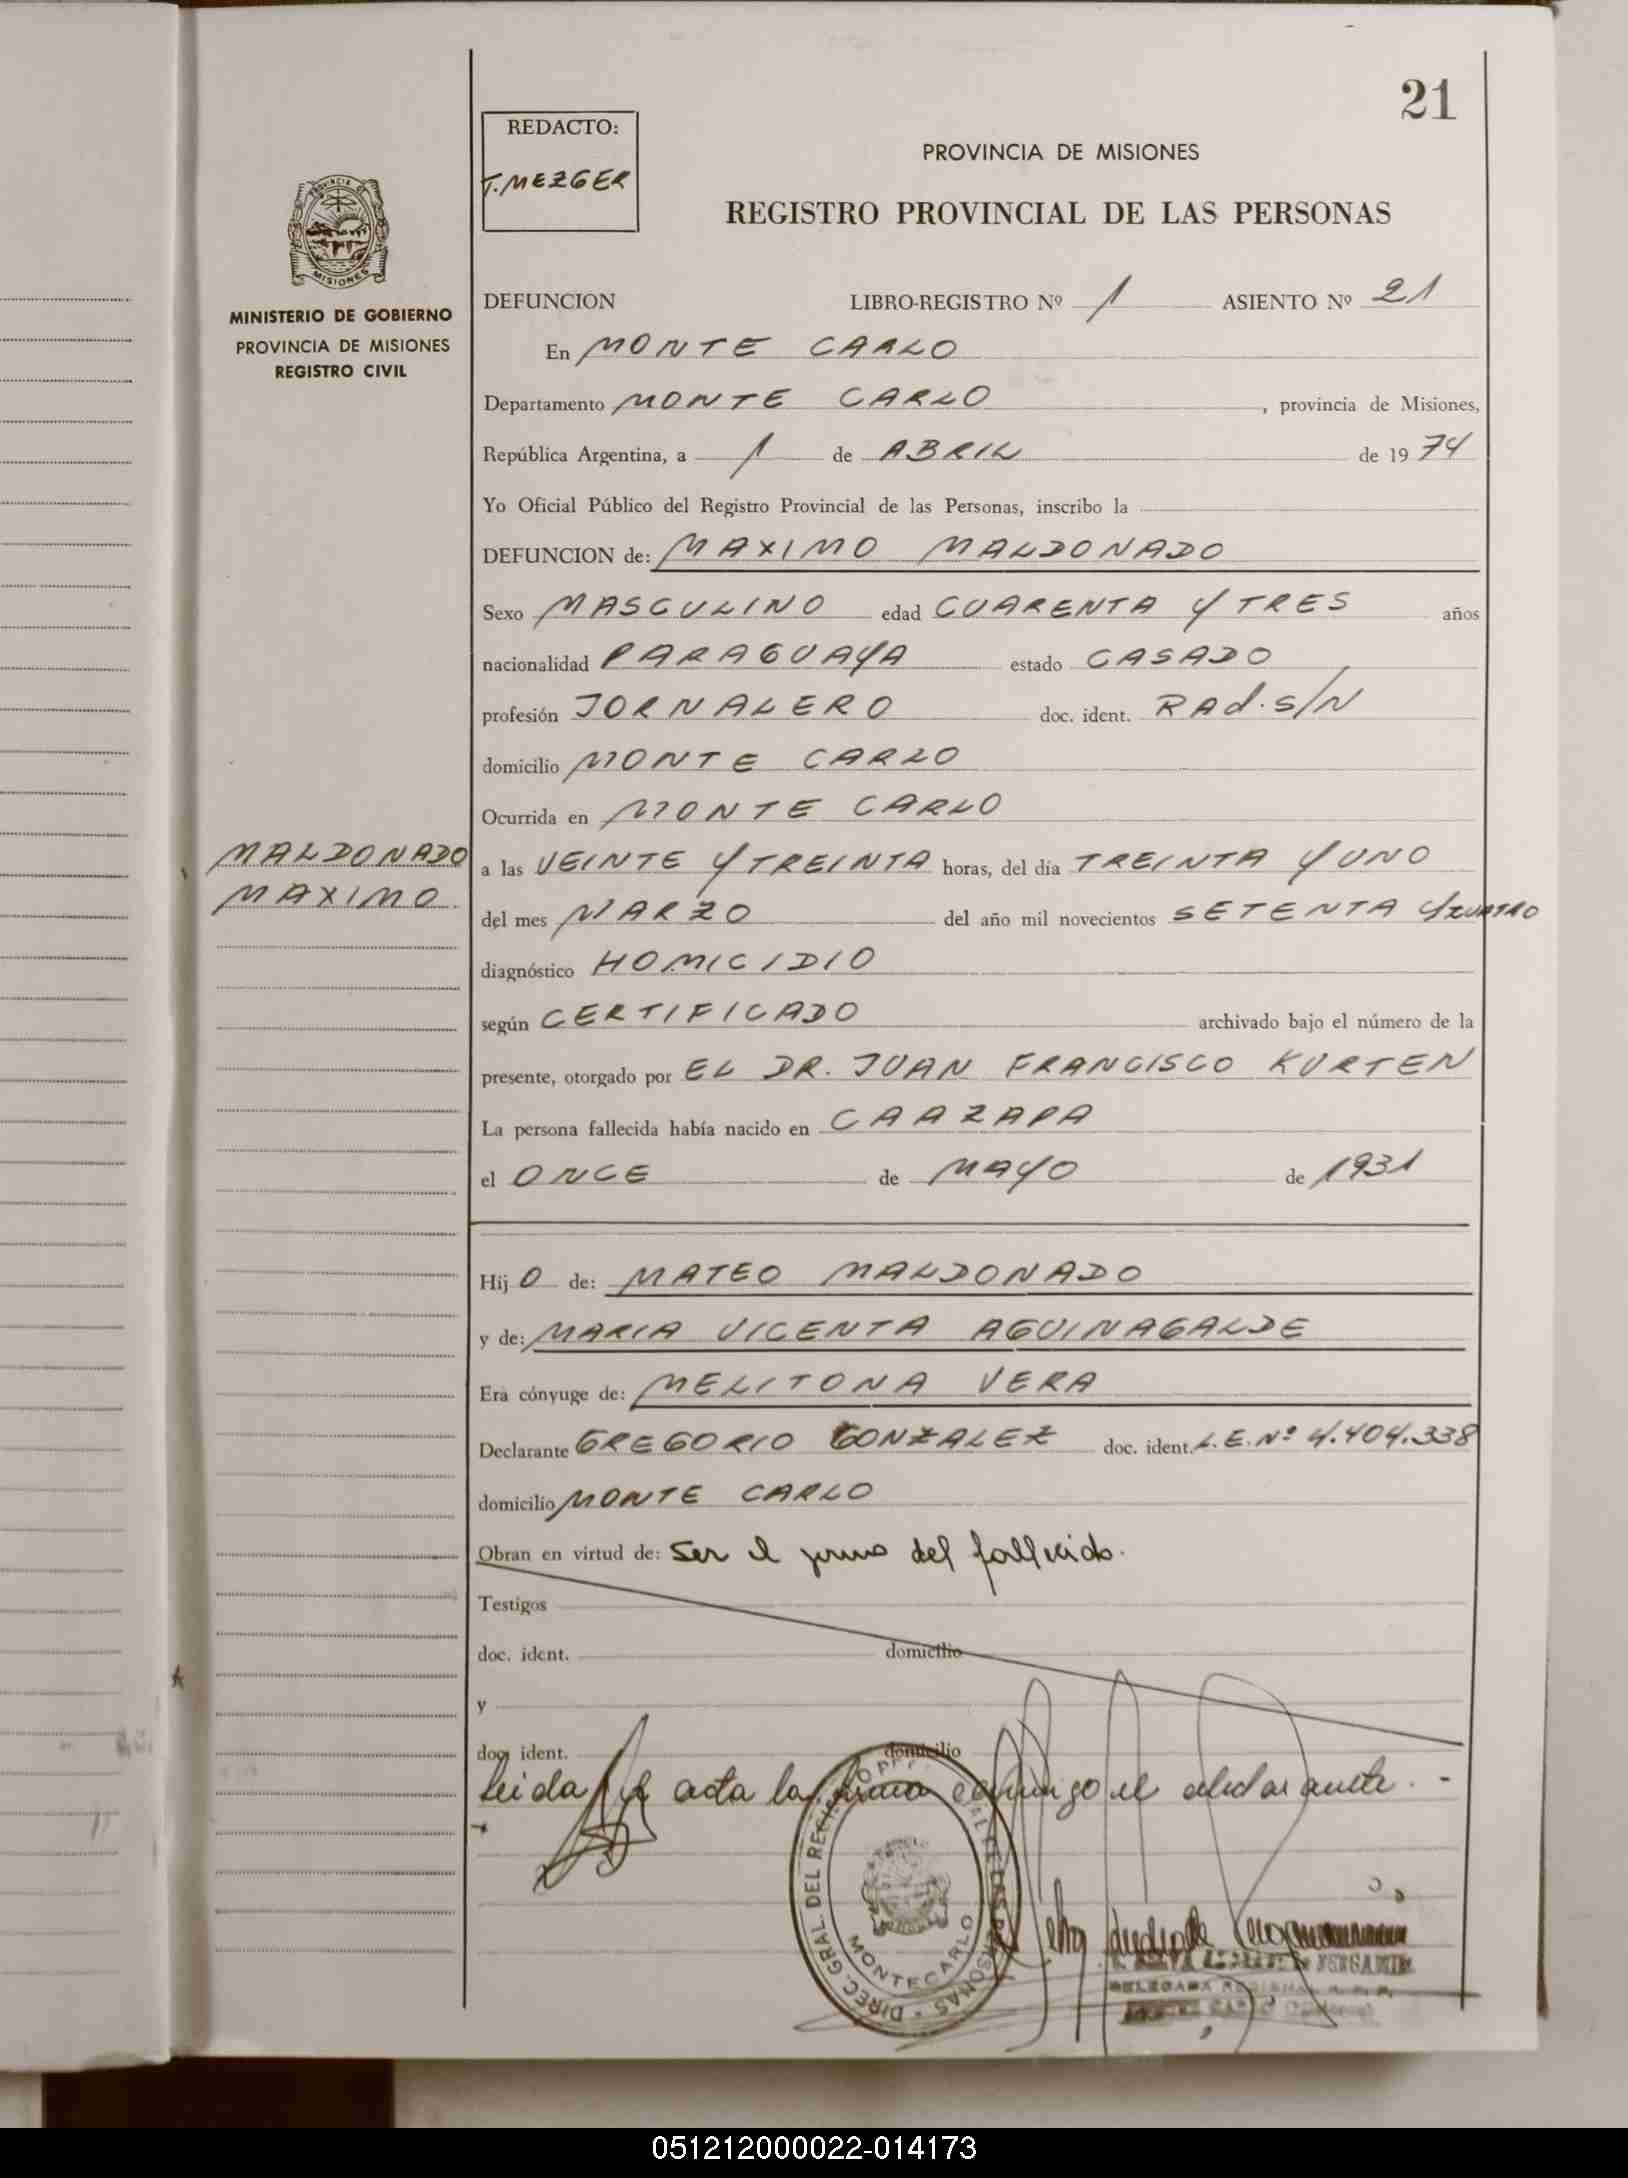 21
REDACTO:
T. MEZGER
PROVINCIA DE MISIONES
REGISTRO PROVINCIAL DE LAS PERSONAS
PROVINCIA DE
MISIONES
MINISTERIO DE GOBIERNO
PROVINCIA DE MISIONES
REGISTRO CIVIL
DEFUNCION LIBRO-REGISTRO Nº 1 ASIENTO Nº 21
En MONTE CARLO
Departamento MONTE CARLO, provincia de Misiones,
República Argentina, a 1 de ABRIL de 1974
Yo Oficial Público del Registro Provincial de las Personas, inscribo la
DEFUNCION de: MAXIMO MALDONADO
Sexo MASCULINO edad CUARENTA Y TRES años
nacionalidad PARAGUAYA estado CASADO
profesión JORNALERO doc. ident. RAd. S/N
domicilio MONTE CARLO
Ocurrida en MONTE CARLO
MALDONADO
MAXIMO.
a las VEINTE Y TREINTA horas, del día TREINTA Y UNO
del mes MARZO del año mil novecientos SETENTA Y CUATRO
diagnóstico HOMICIDIO
según CERTIFICADO archivado bajo el número de la
presente, otorgado por EL DR. JUAN FRANCISCO KURTEN
La persona fallecida había nacido en CAAZAPA
el ONCE de MAYO de 1931
Hij O de: MATEO MALDONADO
y de: MARIA VICENTA AGUINAGALDE
Era cónyuge de: MELITONA VERA
Declarante GREGORIO GONZALEZ doc. ident. L.E. Nº 4.404.338
domicilio MONTE CARLO
Obran en virtud de: Ser el primo del fallecido.
Testigos
doc. ident. domicilio
y
doc. ident. domicilio
Leida el acta la firma conmigo el declarante. -
DIREC. GRAL. DEL REGISTRO PROVINCIAL DE LAS PERSONAS
MONTECARLO
DELEGADA REGIONAL R. P. P.
051212000022-014173